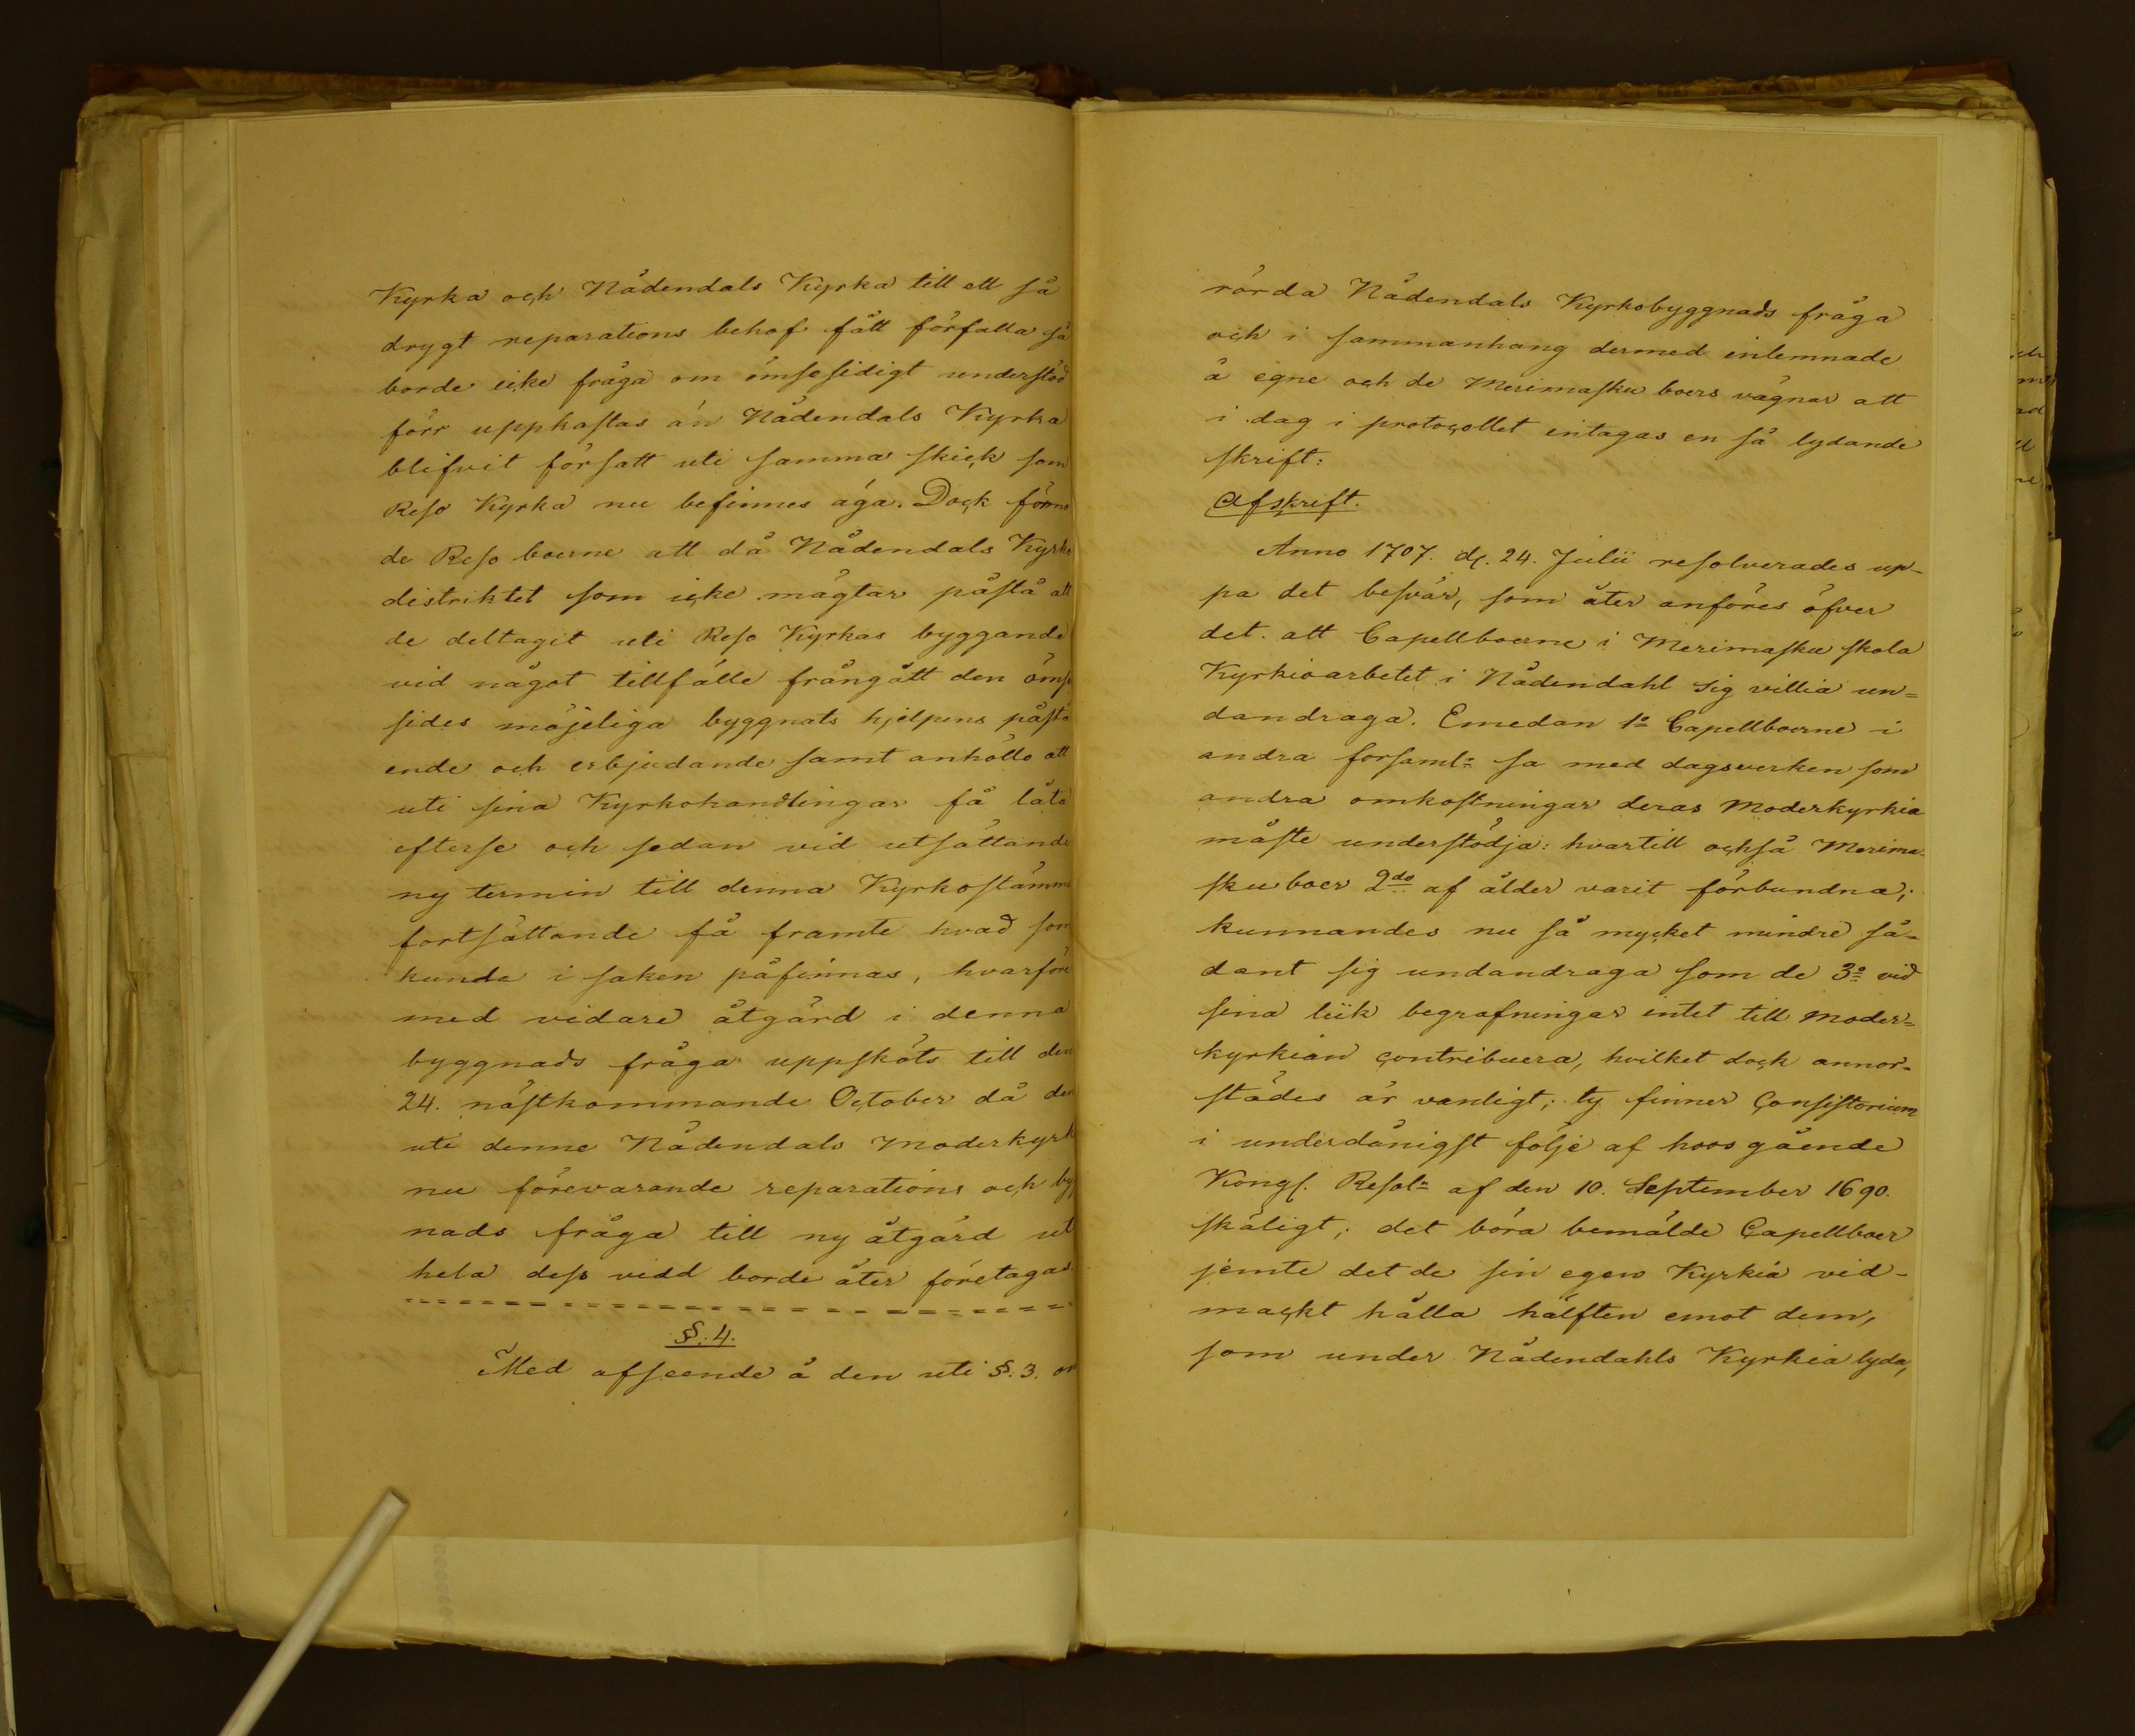 Kyrka och Nådendals Kyrka till ett så
drygt reparations behof fått förfalla så
borde icke fråga om ömsesidigt understöd
förr uppkastas än Nådendals Kyrka
blifvit försatt uti samma skick som
Reso Kyrka nu befinnes äga. Dock förme
de Reso boerne att då Nådendals Kyrko
distriktet som icke mägtar påstå att
de deltagit uti Reso Kyrkas byggande
vid något tillfälle frångått den ömse
sides möjeliga byggnats hjelpens påstå
ende och erbjudande samt anhöllo att
uti sina Kyrkohandlingar få låta
efterse och sedan vid utsättande
ny termin till denna Kyrkostämma
fortsättande få framte hvad som
kunde i saken påfinnas, hvarföre
med vidare åtgärd i denna
byggnads fråga uppsköts till den
24. nästkommande October då den
uti denne Nådendals Moderkyrk
nu förevarande reparations och byg
nads fråga till ny åtgärd ut
hela dess vidd borde åter företagas.
§. 4.
Med afseende å den uti §. 3. om
rörda Nådendals Kyrkobyggnads fråga
och i sammanhang dermed inlemnade
å egne och de Merimasku boers vägnar att
i dag i protocollet intagas en så lydande
skrift:
Afskrift.
Anno 1707. d. 24. Julii resolverades up-
pa det besvär, som åter anföres öfver
det. att Capellboerne i Merimasku skola
Kyrkioarbetet i Nådendahl sig villia un=
dandraga. Emedan 1o Capellboerne i
andra forsaml: sa med dagsverken som
andra omkostningar deras Moderkyrkia
måste understödja: hvartill också Merima-
sku boer 2do af ålder varit förbundna;
kunnandes nu så mycket mindre så-
dant sig undandraga som de 3o vid
sina liik begrafningar intet till Moder=
kyrkian contribuera, hvilket dock annor-
städes är vanligt; ty finner Consistorium
i underdånigst följe af hoos gående
Kongl. Resol: af den 10. September 1690.
skäligt; det böra bemälde Capellboer
jemte det de sin egen Kyrkia vid-
mackt hålla hälften emot dem,
som under Nådendahls Kyrkia lyda,